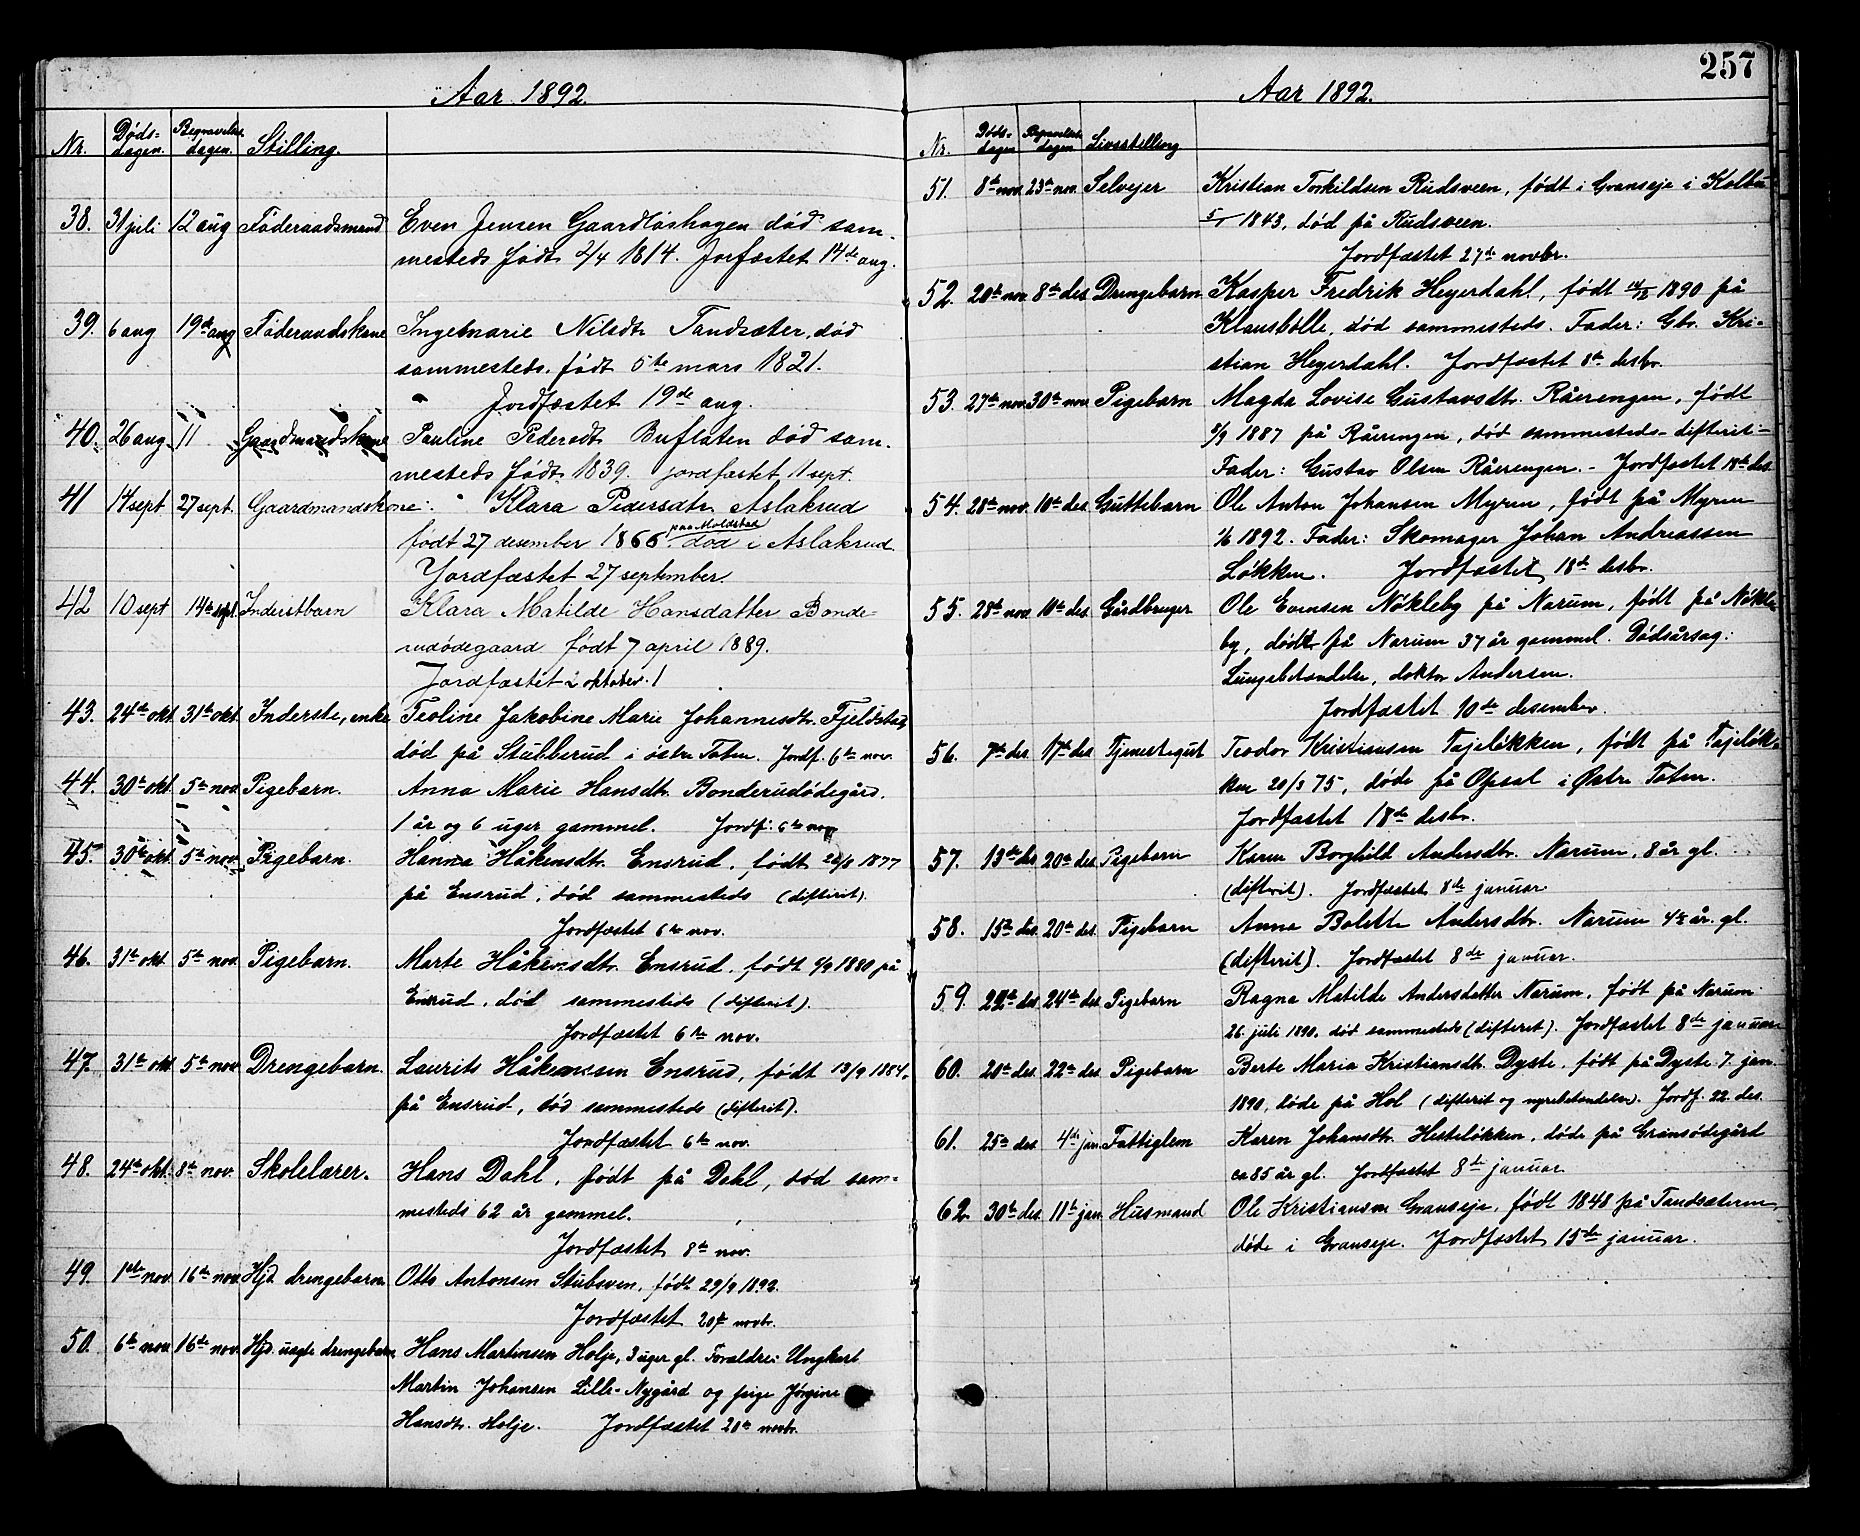 257
Aar 1892.
Nr. Dødsdagen. Begravelsesdagen. Stilling.
38. 31 juli 12 aug Føderaadsmand Even Jensen Gaardløshagen død sam-
mesteds født 2/4 1814. Jorfæstet 14de aug.
39. 6 aug 19de aug Føderaadskone Ingebmarie Nilsdtr Tandsæter, død
sammesteds. født 5te mars 1821.
Jordfæstet 19de aug.
40. 26 aug. 11 Gaardmandskone Pauline Pedersdtr Buflaten død sam-
mesteds født 1839. jordfæstet 11 sept.
41 14 sept 27 sept. Gaardmandskone: Klara Pedersdtr Aslakrud
født 27 desember 1866 paa Moldstad død i Aslakrud.
Jordfæstet 27 september.
42 10 sept 14de sept. Inderstbarn Klara Matilde Hansdatter Bonde-
rudødegaard født 7 april 1889.
Jordfæstet 2 oktober.
43. 24de okt 31te okt. Inderste, enke Teoline Jakobine Marie Johannesdtr. Fjeldstad,
død på Stubberud i østre Toten. Jordf. 6te nov.
44. 30te okt 5te nov Pigebarn. Anna Marie Hansdtr. Bonderudødegård.
1 år og 6 uger gammel. Jordf. 6te nov
45. 30te okt. 5te nov. Pigebarn. Hanna Håkensdtr. Ensrud, født /8 1877
på Ensrud, død sammesteds (difterit).
Jordfæstet 6te nov.
46. 31te okt. 5te nov. Pigebarn. Marte Håkensdtr. Ensrud, født /9 1880 på
Ensrud, død sammesteds (difterit).
Jordfæstet 6te nov.
47. 31te okt 5te nov. Drengebarn. Laurits Håkensen Ensrud, født 13/9 1884,
på Ensrud, død sammesteds (difterit).
Jordfæstet 6te nov.
48. 24de okt. 8te nov. Skolelærer. Hans Dahl, født på Dahl, død sam-
mesteds 62 år gammel.
Jordfæstet 8te nov.
49. 1ste nov 16de nov. Hjd. drengebarn Otto Antonsen Stubsven, født 29/9 1892.
Jordfæstet 20de novbr.
50. 6te nov 16de nov. Hjd. uægte drengebarn Hans Martinsen Holje, 3 uger gl. Foreldre: Ungkarl
Martin Johansen Lille-Nygård og pige Jørgine
Hansdtr. Holje. Jordfæstet 20de novbr.
Aar 1892.
Nr. Dødsdagen Begravelsesdagen Livsstilling
51. 8de nov. 23de nov. Selvejer Kristian Torkildsen Rudsveen, født i Granseje i Kolbu
5/ 1843, død på Rudsveen.
Jordfæstet 27de novbr.
52. 20de nov. 8de des. Drengebarn Kasper Fredrik Heyerdahl, født 1890 på
Klausbølle, død sammesteds. Fader: Gbr. Kri-
stian Heyerdahl. Jordfæstet 8de desbr.
53. 27de nov. 30te nov. Pigebarn Magda Lovise Gustavsdtr. Råerengen, født
/9 1887 på Råerengen, død sammesteds - difterit -
Fader: Gustav Olsen Råerengen. - Jordfæstet 18de des.
54. 28de nov. 10de des. Guttebarn Ole Anton Johansen Myren, født på Myren
1/6 1892. Fader: Skomager Johan Andreassen
Løkken. Jordfæstet 18de desbr.
55. 28de nov. 10de des. Gårdbruger Ole Evensen Nøkleby på Narum, født på Nøkle-
by, død på Narum 37 år gammel. Dødsårsag:
Lungebetændelse, doktor Andersen.
Jordfæstet 10de desember.
56. 7de des. 17de des Tjenestegut Teodor Kristiansen Fajeløkken, født på Fajeløk-
ken 20/3 75, døde på Opsal i Østre Toten.
Jordfæstet 18de desbr.
57. 13de des 20de des. Pigebarn Karen Borghild Andersdtr. Narum, 8 år gl.
(difterit). Jordfæstet 8de januar.
58. 15de des. 20de des. Pigebarn Anna Bolette Andersdtr. Narum 4½ år. gl.
(difterit). Jordfæstet 8de januar.
59. 22de des 24de des. Pigebarn Ragna Matilde Andersdatter Narum, født på Narum
26. juli 1890, død sammesteds (difterit). Jordfæstet 8de januar.
60. 20de des. 22de des. Pigebarn Berte Maria Kristiansdtr. Dyste, født på Dyste 7. jan.
1890, døde på Hol (difterit og nyrebetændelse). Jordf. 22. des.
61. 25de des. 4de jan. Fattiglem Karen Johansdtr. Hesteløkken, døde på Gransødegård
ca 85 år gl. Jordfæstet 8de januar.
62. 30te des. 11te jan. Husmand Ole Kristiansen Granseje, født 1848 på Tandsæteren,
døde i Granseje. Jordfæstet 15de januar.